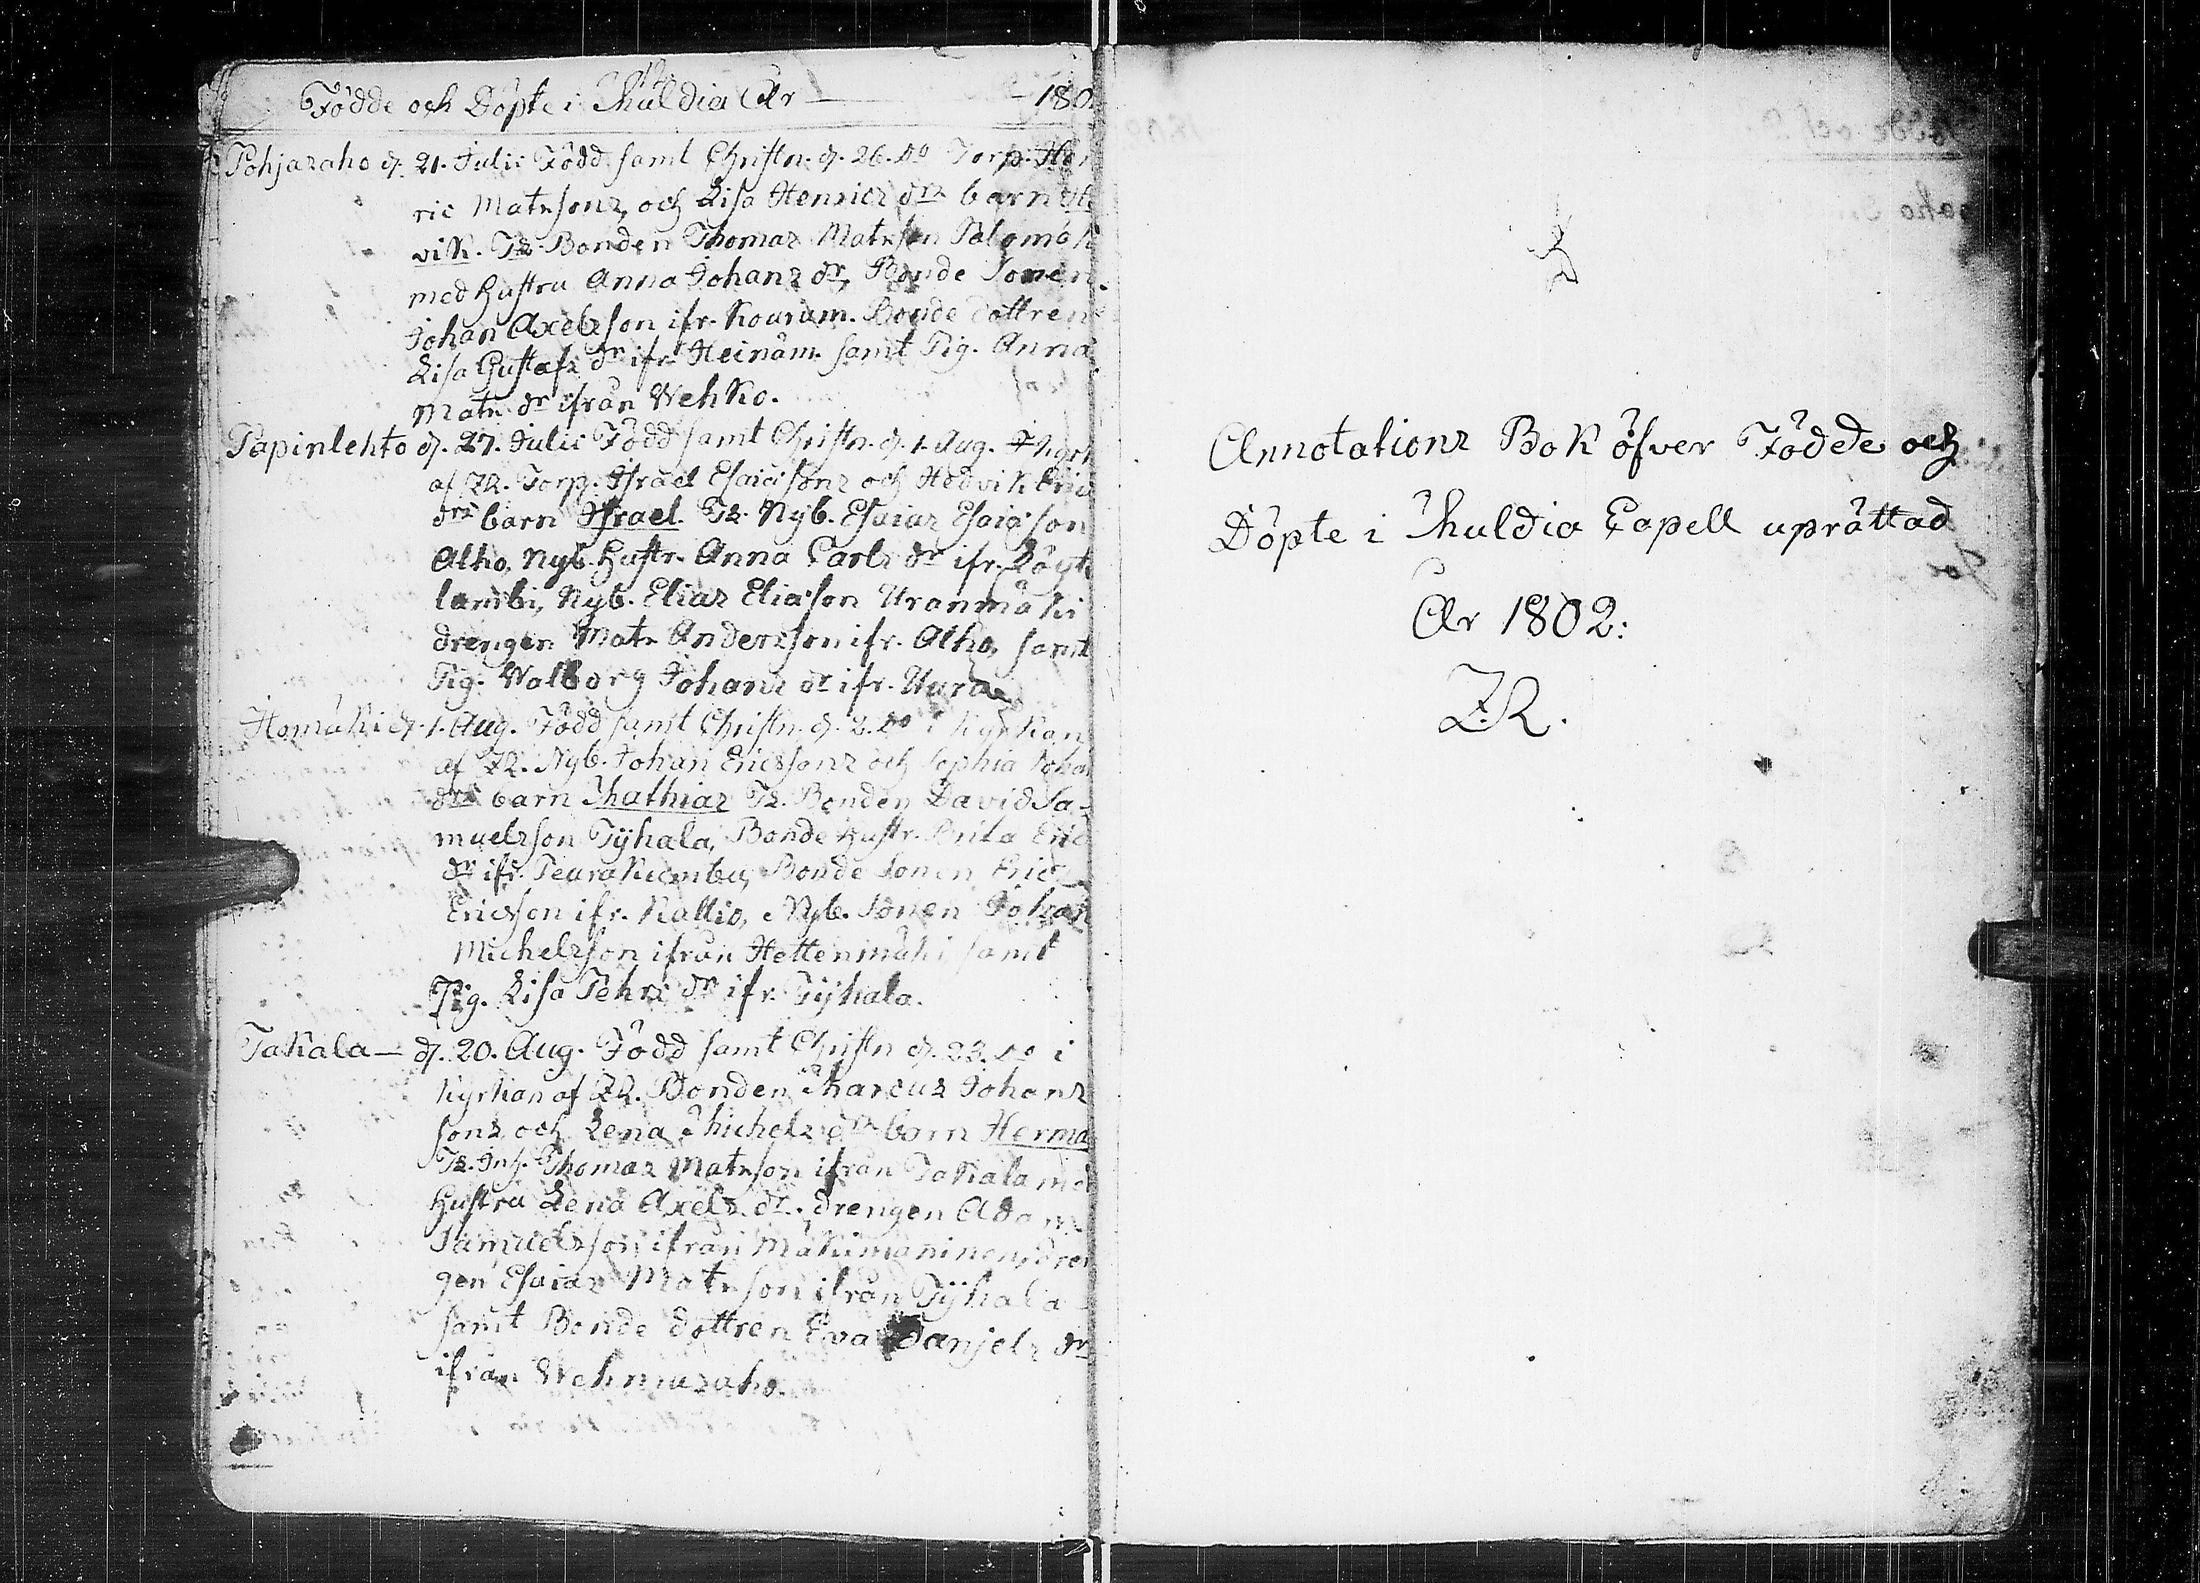 Födde och Döpte i Muldia År — 180
Pohjaraho d. 21. Julii Född samt Christn. d. 26. do Torp. Hen
ric Matssons, och Lisa Henrics drs barn He
vik. Ts. Bonden Thomas Matsson Palomäki
med Hustru Anna Johans dr, Bonde Sonen
Johan Axelsson ifr. Kouram. Bonde dottren
Lisa Gustafs dr ifr. Heinäm. samt Pig. Anna
Mats dr ifrån Wehko.
Papinlehto d. 27. Julii Född samt Christn. d. 1. Aug. i
af ZR. Torp. Israel Esaiæsons och Hedvik Erics
drs barn Israel. Ts. Nyb. Esaias Esaiæson
Alho, Nyb. Hustr. Anna Carls dr ifr. Löyt
lambi, Nyb. Elias Eliæson Uranmäki
drengen Mats Andersson ifr. Alho, samt
Pig. Walborg Johans dr ifr. Uura
Homäki d. 1. Aug. Född samt Christn. d. 2. do i Kyrkan
af ZR. Nyb. Johan Ericssons och Sophia Johans
drs barn Mathias Ts. Bonden David Sa-
muelsson Tyhala, Bonde Hustr. Brita Erics
dr ifr. Peurakumbu, Bonde Sonen Eric
Ericsson ifr. Kallio, Nyb. Sonen Johan
Michelsson ifrån Hettenmäki samt
Pig. Lisa Pehrs dr ifr. Tyhala.
Takala — d. 20. Aug. Född samt Christn d. 23. do i
Kyrkan af ZR. Bonden Marcus Johans
sons och Lena Michels drs barn Herma
Ts. Inh. Thomas Matsson ifrån Takala med
Hustru Lena Axels dr. drengen Adam
Samuelsson ifrån Mäkimaninen, dren
gen Esaias Matsson ifrån Tyhala
samt Bonde dottren Eva Danjels dr
ifrån Wehmasaho.
Annotations Bok öfver Födde och
Döpte i Muldia Capell uprättad
År 1802:
ZR.